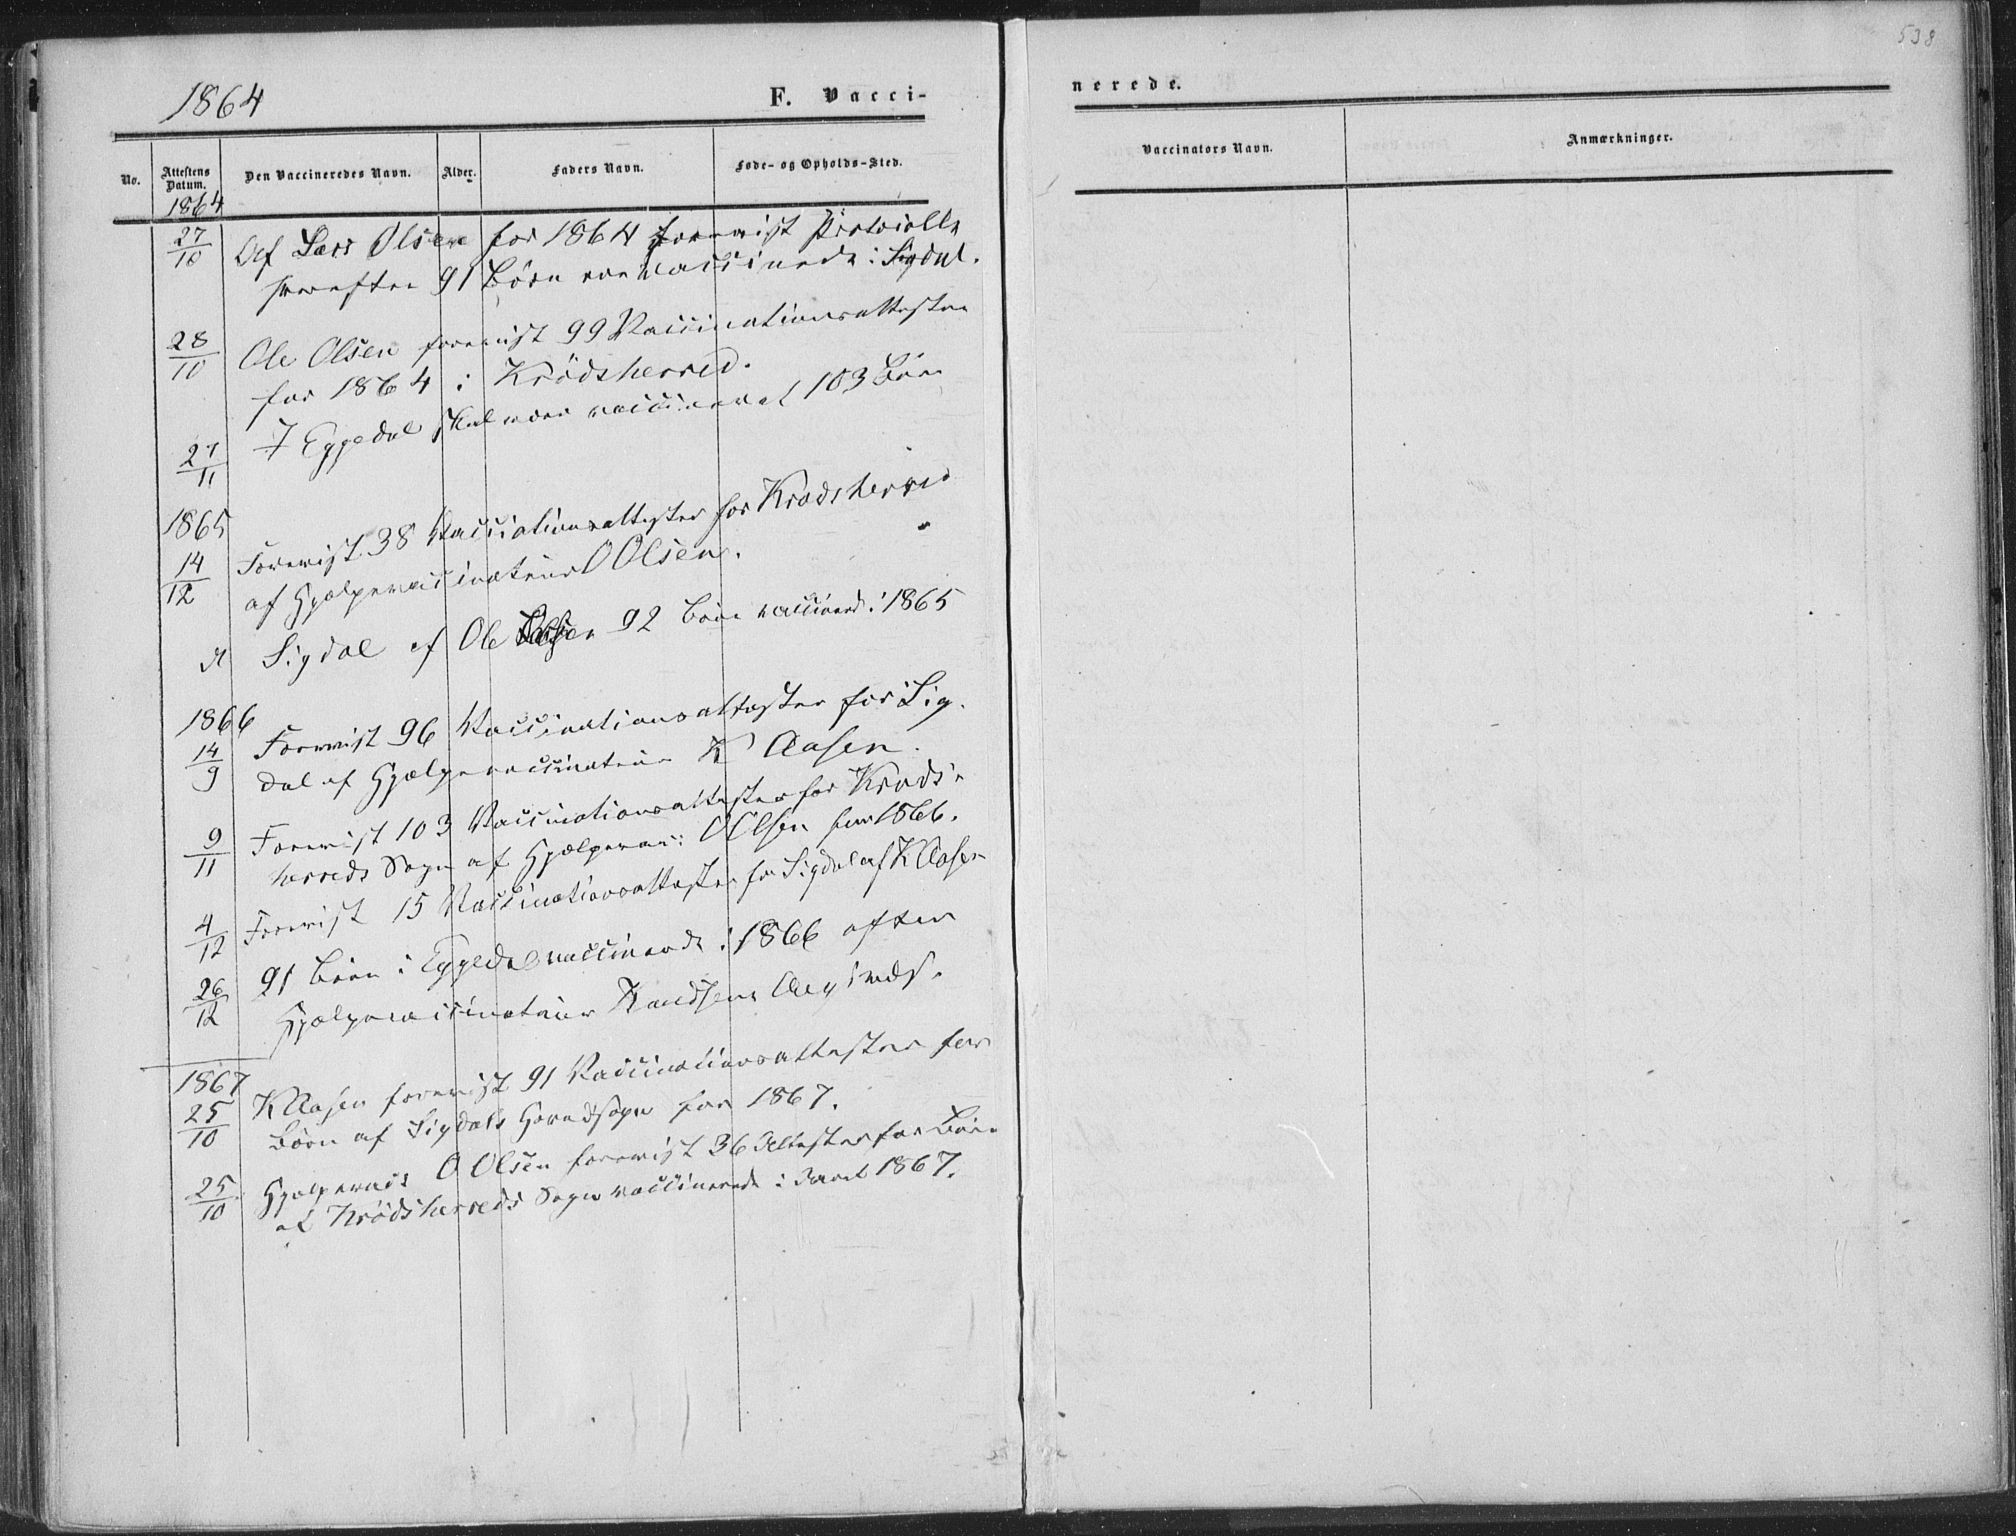 538
1864
F. Vacci-
nerede.
No.
Attestens Datum.
Den Vaccineredes Navn.
Alder.
Faders Navn.
Føde- og Opholds-Sted.
Vaccinators Navn.
Anmærkninger.
1864
27/10 Af Lars Olsen for 1864 forevist Protocolle
hvorefter 91 Børn ere vaccinerede i Sigdal.
28/10 Ole Olsen forevist 99 Vaccinationsattester
for 1864 i Krødsherred.
27/11 I Eggedal skal være vaccineret 103 Børn
1865
14/12 Forevist 38 Vaccinationsattester for Krødsherred
af Hjælpevaccinateur O Olsen.
Sigdal af Ole 92 Børn vaccinerede i 1865
1866
14/9 Forevist 96 Vaccinationsattester for Sig-
dal af Hjælpevaccinateur K Aasen.
9/11 Forevist 103 Vaccinationsattester for Krøds-
herreds Sogn af Hjælpevacc: O Olsen for 1866.
4/12 Forevist 15 Vaccinationsattester for Sigdal af K Aasen
26/12 91 Børn i Eggedal vaccinerede i 1866 efter
Hjælpevaccinateur Knudsens
1867
25/10 K Aasen forevist 91 Vaccinationsattester for
Børn af Sigdals Hovedsogn for 1867.
25/10 Hjælpevacc O Olsen forevist 36 Attester for Børn
af Krødsherreds Sogn vaccinerede i Aaret 1867.